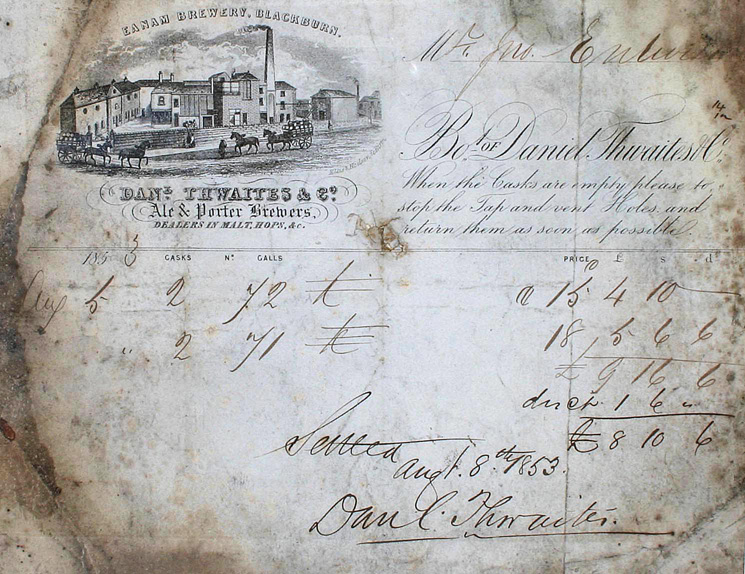 EANAM BREWERY, BLACKBURN.
Mr. Jno.
Bot. OF Daniel Thwaites & Co.
When the Casks are empty please to
stop the Tap and vent Holes, and
return them as soon as possible
DANL. THWAITES & Co.
Ale & Porter Brewers,
DEALERS IN MALT, HOPS, &c.
1853 CASKS No. GALLS PRICE £ s d
Aug 5 2 72 @ 15 4 10
" 2 71 18 5 6 6
£ 9 16 6
disct. 1 6 "
£ 8 10 6
Settled
Augt. 8th 1853.
Danl. Thwaites.